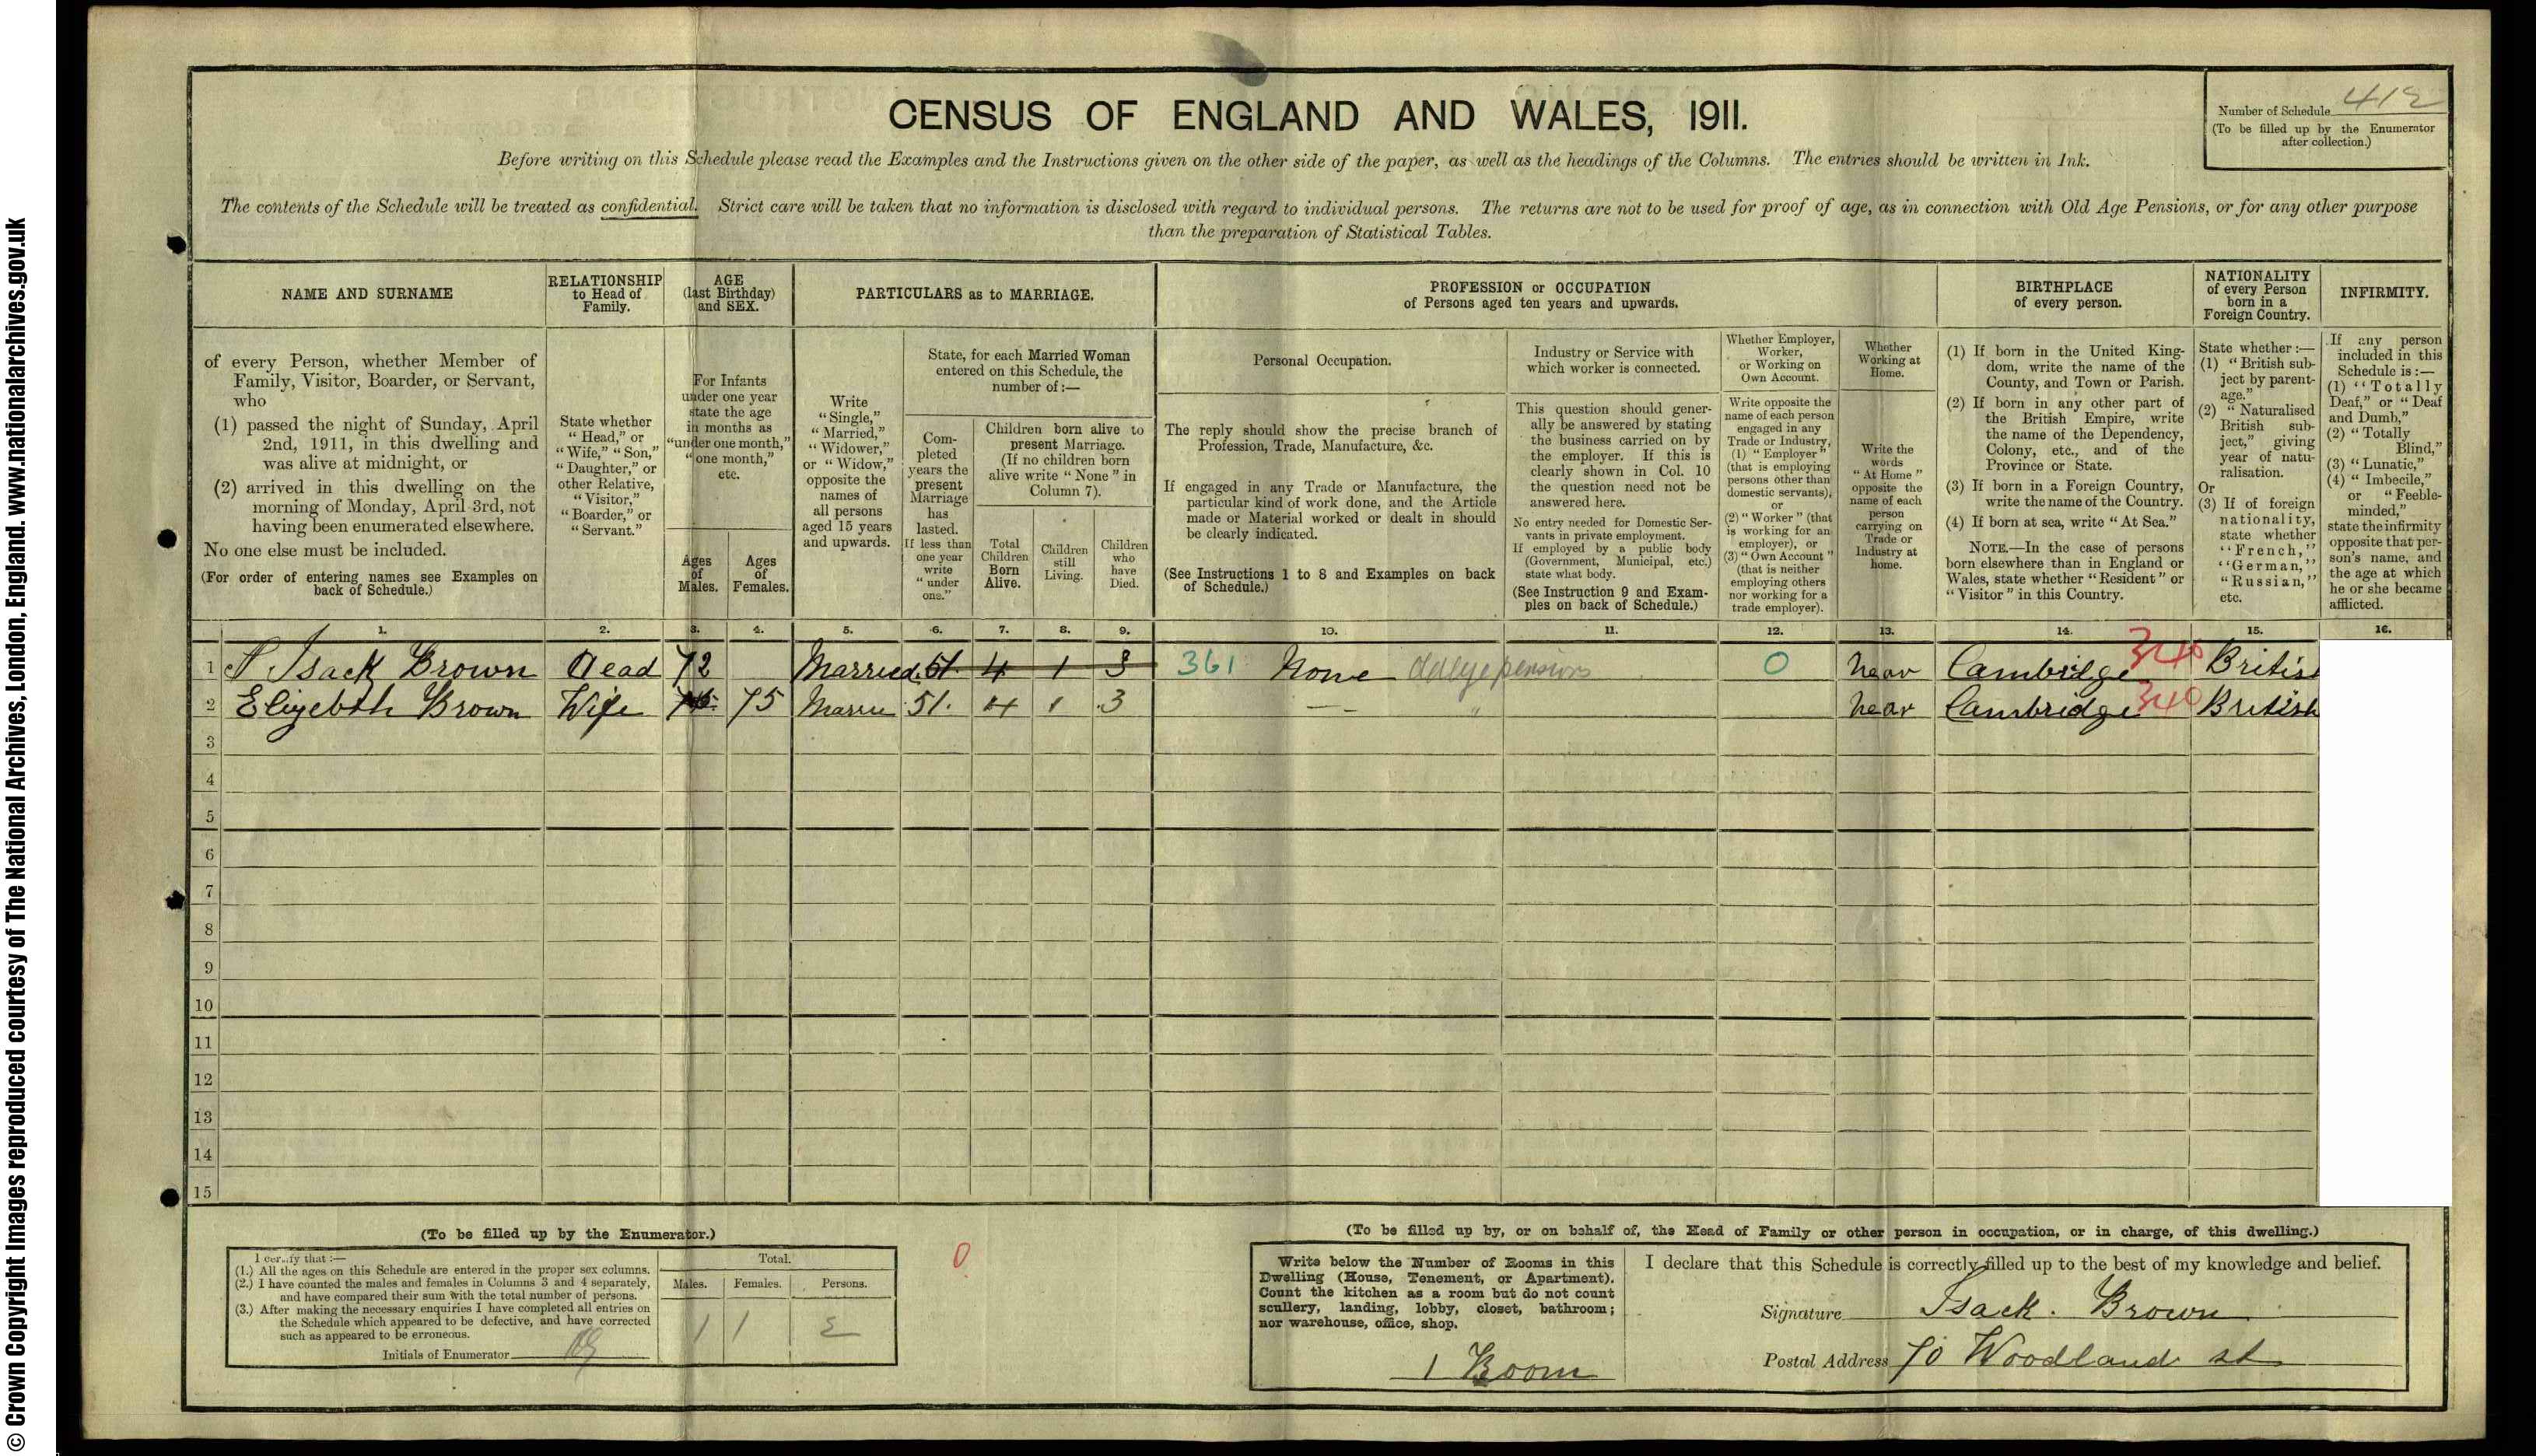 © Crown Copyright Images reproduced courtesy of The National Archives, London, England. www.nationalarchives.gov.uk
CENSUS OF ENGLAND AND WALES, 1911.
Number of Schedule 412
(To be filled up by the Enumerator
after collection.)
Before writing on this Schedule please read the Examples and the Instructions given on the other side of the paper, as well as the headings of the Columns. The entries should be written in Ink.
The contents of the Schedule will be treated as confidential. Strict care will be taken that no information is disclosed with regard to individual persons. The returns are not to be used for proof of age, as in connection with Old Age Pensions, or for any other purpose
than the preparation of Statistical Tables.
NAME AND SURNAME
of every Person, whether Member of
Family, Visitor, Boarder, or Servant,
who
(1) passed the night of Sunday, April
2nd, 1911, in this dwelling and
was alive at midnight, or
(2) arrived in this dwelling on the
morning of Monday, April 3rd, not
having been enumerated elsewhere.
No one else must be included.
(For order of entering names see Examples on
back of Schedule.)
RELATIONSHIP
to Head of
Family.
State whether
"Head," or
"Wife," "Son,"
"Daughter," or
other Relative,
"Visitor,"
"Boarder," or
"Servant."
AGE
(last Birthday)
and SEX.
For Infants
under one year
state the age
in months as
"under one month,"
"one month,"
etc.
Ages
of
Males.
Ages
of
Females.
PARTICULARS as to MARRIAGE.
Write
"Single,"
"Married,"
"Widower,"
or "Widow,"
opposite the
names of
all persons
aged 15 years
and upwards.
State, for each Married Woman
entered on this Schedule, the
number of:—
Com-
pleted
years the
present
Marriage
has
lasted.
If less than
one year
write
"under
one."
Children born alive to
present Marriage.
(If no children born
alive write "None" in
Column 7).
Total
Children
Born
Alive.
Children
still
Living.
Children
who
have
Died.
PROFESSION or OCCUPATION
of Persons aged ten years and upwards.
Personal Occupation.
The reply should show the precise branch of
Profession, Trade, Manufacture, &c.
If engaged in any Trade or Manufacture, the
particular kind of work done, and the Article
made or Material worked or dealt in should
be clearly indicated.
(See Instructions 1 to 8 and Examples on back
of Schedule.)
Industry or Service with
which worker is connected.
This question should gener-
ally be answered by stating
the business carried on by
the employer. If this is
clearly shown in Col. 10
the question need not be
answered here.
No entry needed for Domestic Ser-
vants in private employment.
If employed by a public body
(Government, Municipal, etc.)
state what body.
(See Instruction 9 and Exam-
ples on back of Schedule.)
Whether Employer,
Worker,
or Working on
Own Account.
Write opposite the
name of each person
engaged in any
Trade or Industry,
(1) "Employer"
(that is employing
persons other than
domestic servants),
or
(2) "Worker" (that
is working for an
employer), or
(3) "Own Account"
(that is neither
employing others
nor working for a
trade employer).
Whether
Working at
Home.
Write the
words
"At Home"
opposite the
name of each
person
carrying on
Trade or
Industry at
home.
BIRTHPLACE
of every person.
(1) If born in the United King-
dom, write the name of the
County, and Town or Parish.
(2) If born in any other part of
the British Empire, write
the name of the Dependency,
Colony, etc., and of the
Province or State.
(3) If born in a Foreign Country,
write the name of the Country.
(4) If born at sea, write "At Sea."
NOTE.—In the case of persons
born elsewhere than in England or
Wales, state whether "Resident" or
"Visitor" in this Country.
NATIONALITY
of every Person
born in a
Foreign Country.
State whether :—
(1) "British sub-
ject by parent-
age."
(2) "Naturalised
British sub-
ject," giving
year of natu-
ralisation.
Or
(3) If of foreign
nationality,
state whether
"French,"
"German,"
"Russian,"
etc.
INFIRMITY.
If any person
included in this
Schedule is :—
(1) "Totally
Deaf," or "Deaf
and Dumb,"
(2) "Totally
Blind,"
(3) "Lunatic,"
(4) "Imbecile,"
or "Feeble-
minded,"
state the infirmity
opposite that per-
son's name, and
the age at which
he or she became
afflicted.
1. 2. 3. 4. 5. 6. 7. 8. 9. 10. 11. 12. 13. 14. 15. 16.
1 Isack Brown Head 72 Married 51 4 1 3 361 None Old age pensions 0 near Cambridge 340 British
2 Elizebth Brown Wife 75 Marrie 51. 4 1 3 — near Cambridge 340 British
3
4
5
6
7
8
9
10
11
12
13
14
15
(To be filled up by the Enumerator.)
I certify that :—
(1.) All the ages on this Schedule are entered in the proper sex columns.
(2.) I have counted the males and females in Columns 3 and 4 separately,
and have compared their sum with the total number of persons.
(3.) After making the necessary enquiries I have completed all entries on
the Schedule which appeared to be defective, and have corrected
such as appeared to be erroneous.
Initials of Enumerator
Total.
Males. Females. Persons.
1 1 2
0
(To be filled up by, or on behalf of, the Head of Family or other person in occupation, or in charge, of this dwelling.)
Write below the Number of Rooms in this
Dwelling (House, Tenement, or Apartment).
Count the kitchen as a room but do not count
scullery, landing, lobby, closet, bathroom;
nor warehouse, office, shop.
1 Room
I declare that this Schedule is correctly filled up to the best of my knowledge and belief.
Signature Isack. Brown
Postal Address 70 Woodland st